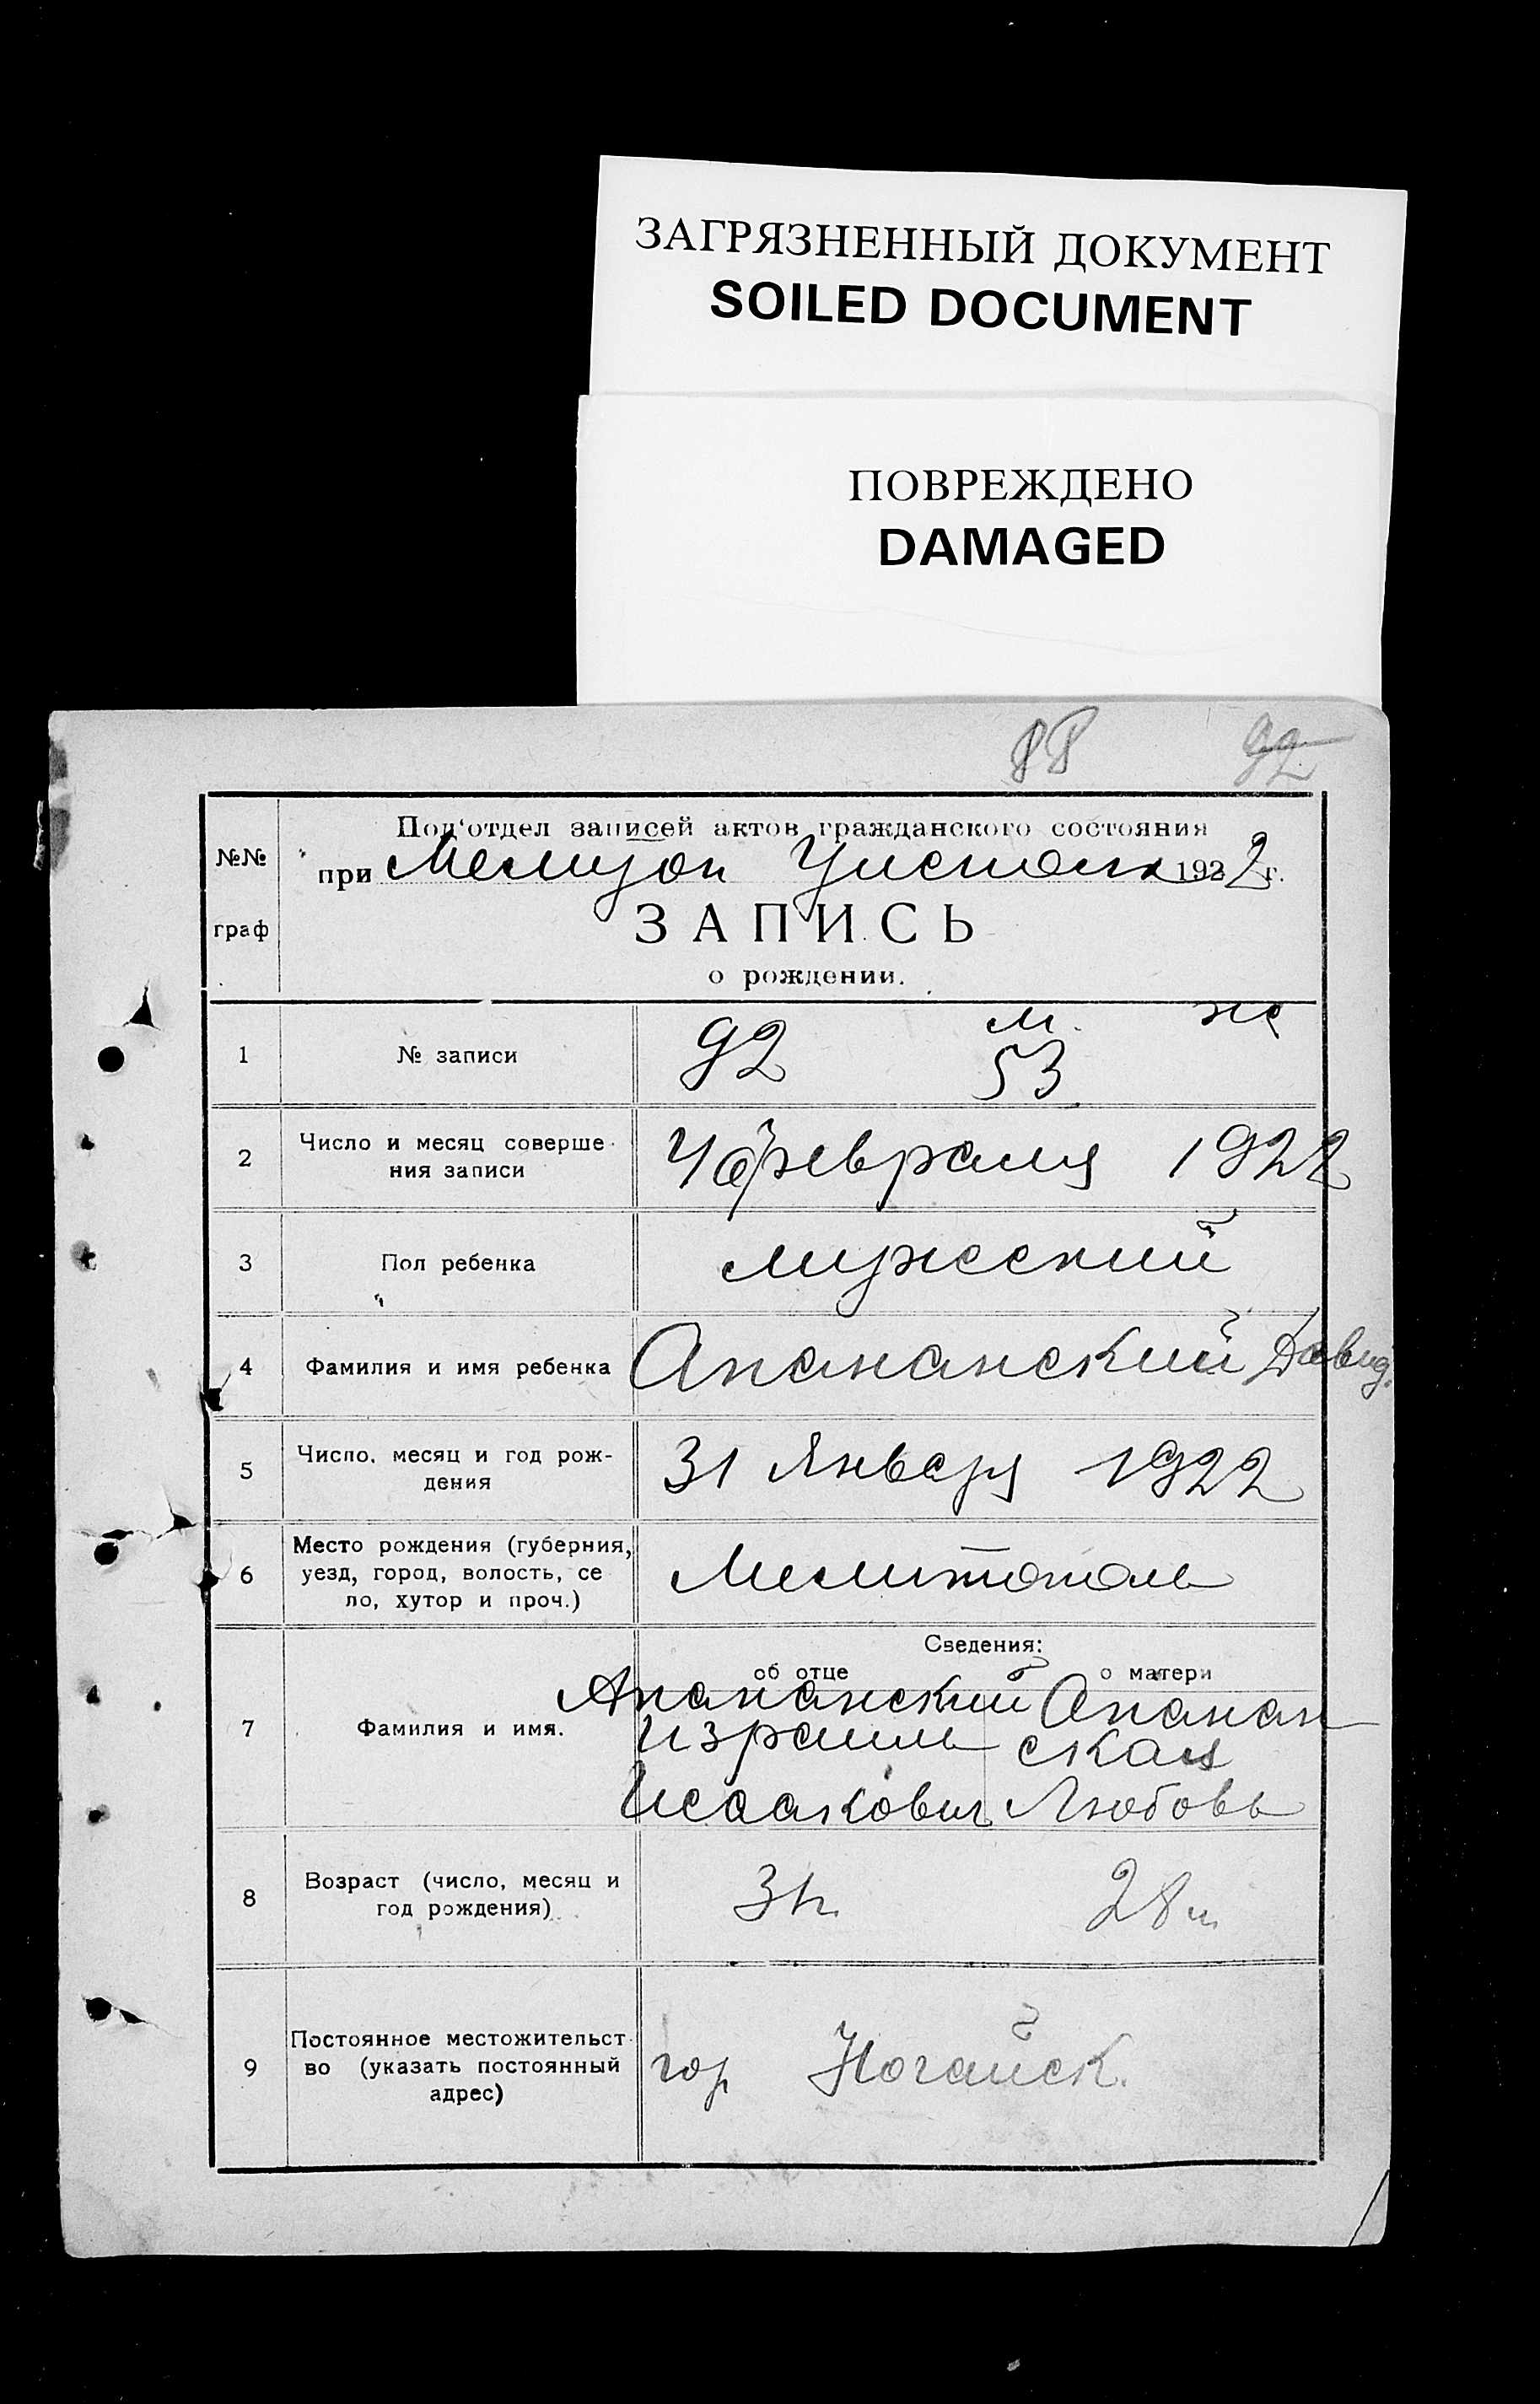 ЗАГРЯЗНЕННЫЙ ДОКУМЕНТ
SOILED DOCUMENT
ПОВРЕЖДЕНО
DAMAGED
88 92
№№
граф
Под'отдел записей актов гражданского состояния
при 1922г.
ЗАПИСЬ
о рождении.
м. ж
1 № записи 92 53
2 Число и месяц соверше
ния записи
4 февраля 1922
3 Пол ребенка мужский
4 Фамилия и имя ребенка Апананский Давид.
5 Число, месяц и год рож-
дения
31 Января 1922
6 Место рождения (губерния,
уезд, город, волость, се
ло, хутор и проч.)
Мелитополь
Сведения:
об отце о матери
7 Фамилия и имя.
Апананский Апанан
Израиль ская
Исаакович Любовь
8 Возраст (число, месяц и
год рождения)
28
9 Постоянное местожительст
во (указать постоянный
адрес)
гор Ногайск.